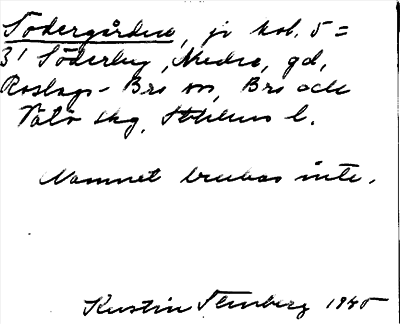 Södergården, jr kol. 5 =
3¹ Söderby, Nedre, gd,
Roslags-Bro sn, Bro och
Vätö skg, Sthlms l.
Namnet brukas inte.
Kerstin Stenberg 1945